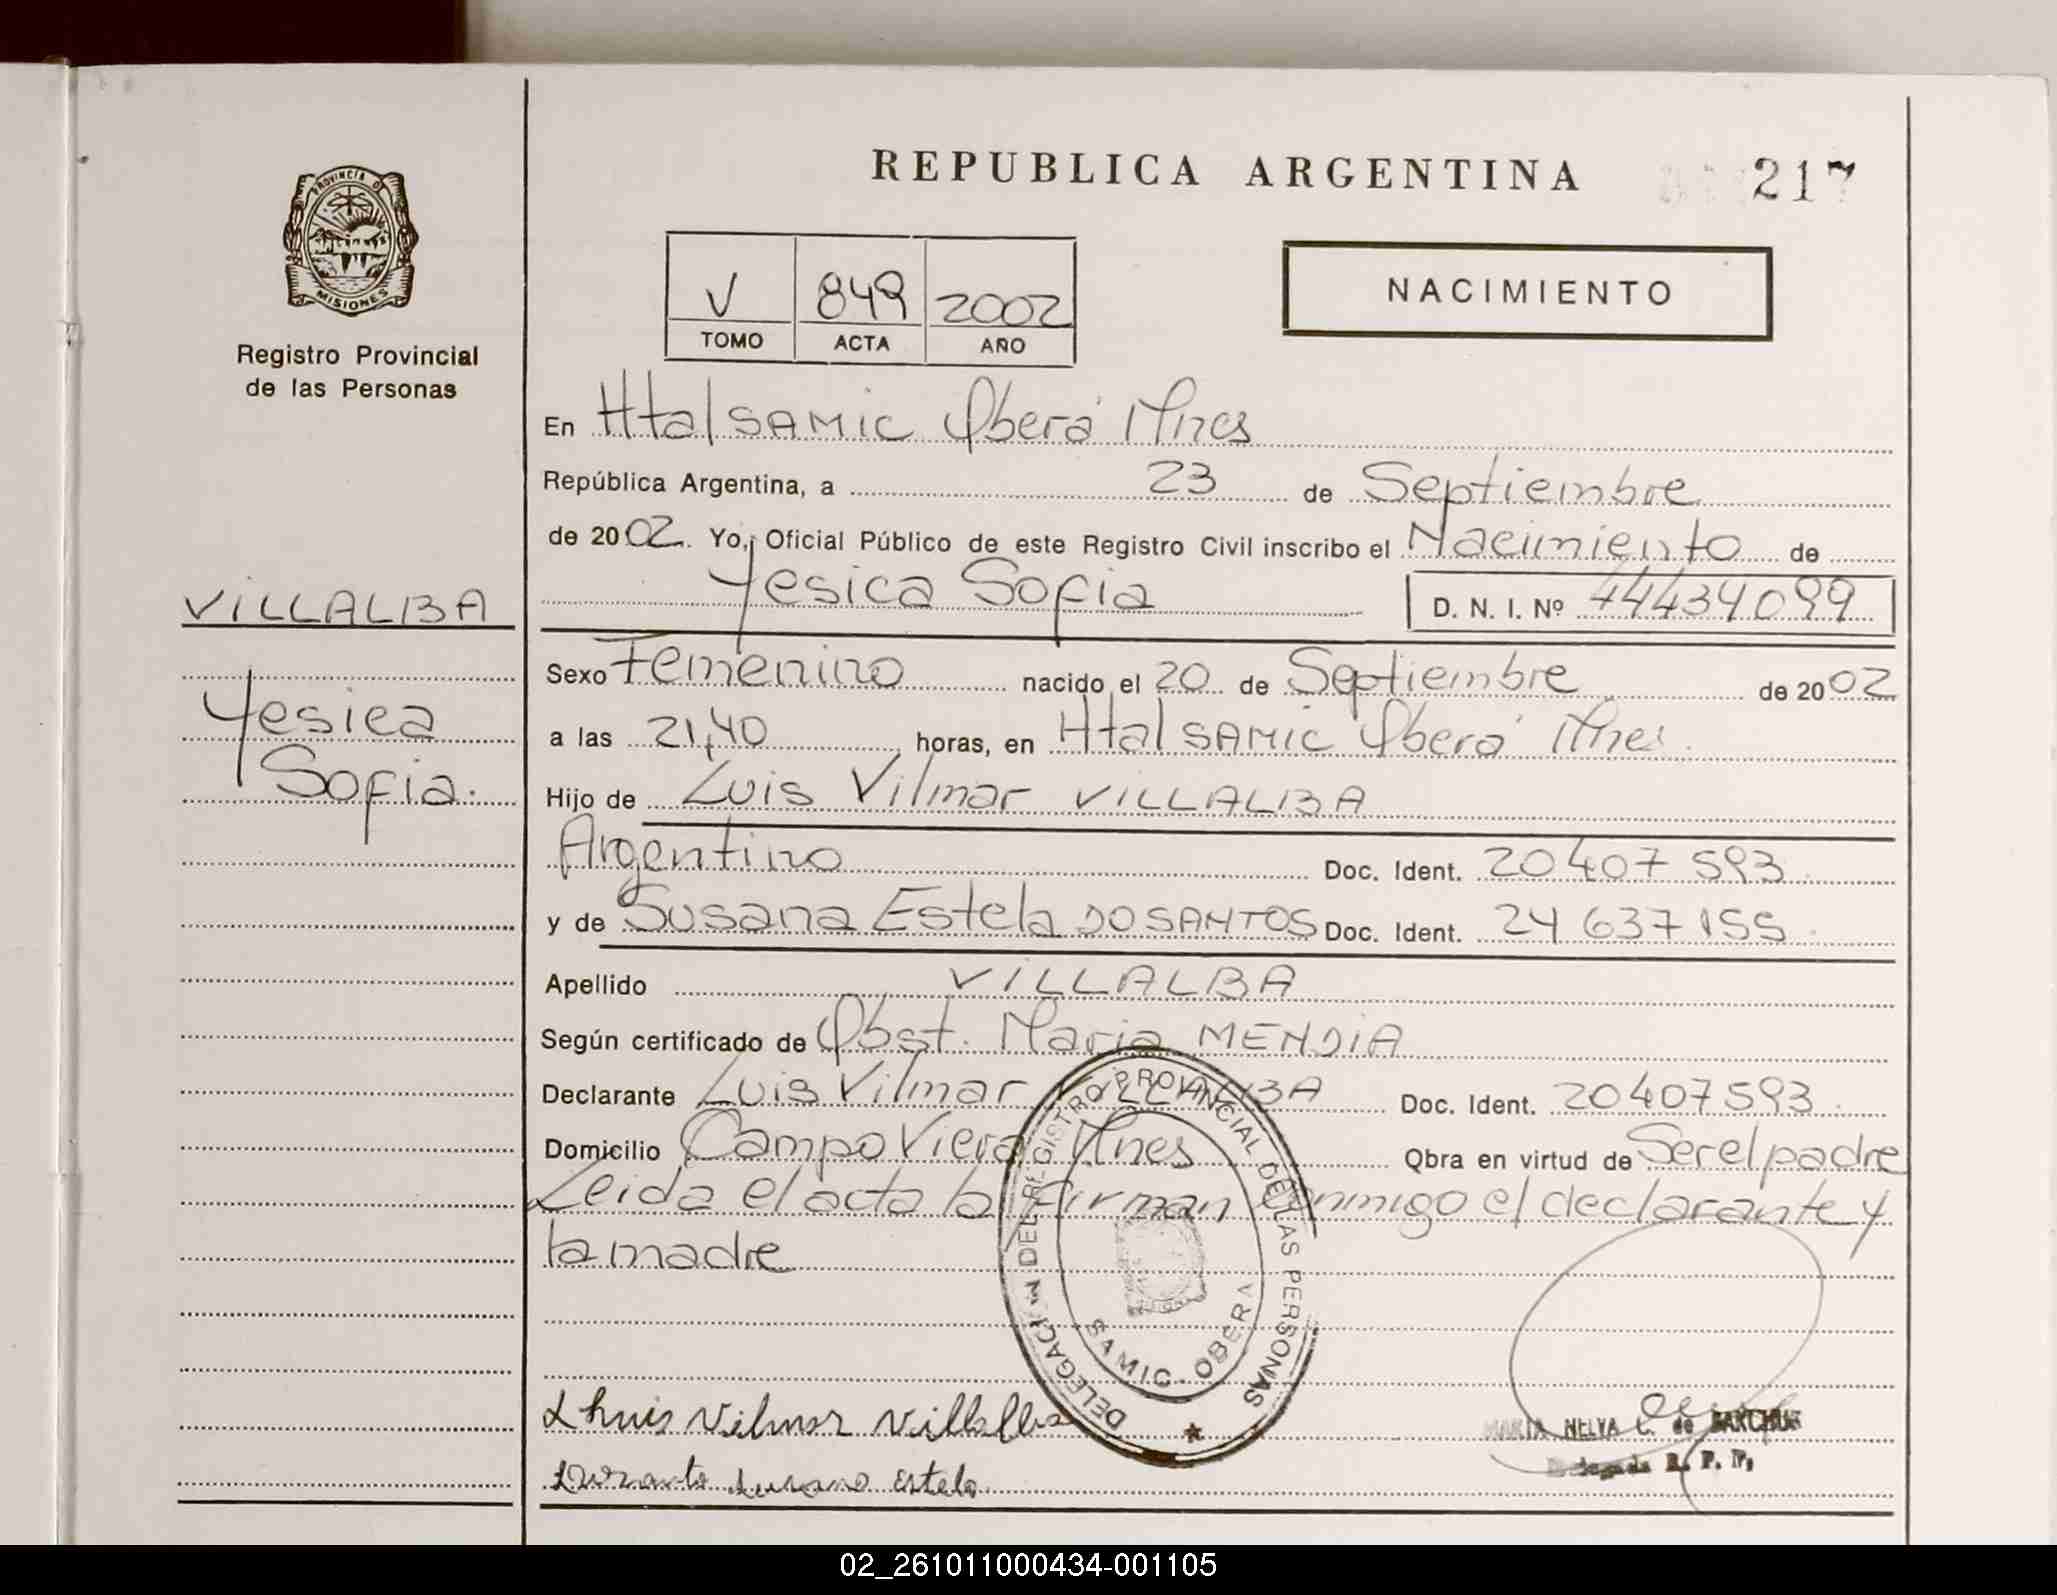 REPUBLICA ARGENTINA
217
PROVINCIA D
MISIONES
Registro Provincial
de las Personas
V 849 2002
TOMO ACTA AÑO
NACIMIENTO
En Htal SAMIC Oberá Mnes
República Argentina, a 23 de Septiembre
de 2002. Yo, Oficial Público de este Registro Civil inscribo el Nacimiento de
Yesica Sofia D. N. I. Nº 44434099
VILLALBA
Yesica
Sofia.
Sexo Femenino nacido el 20 de Septiembre de 2002
a las 21,40 horas, en Htal SAMIC Oberá Mnes.
Hijo de Luis Vilmar VILLALBA
Argentino Doc. Ident. 20407593
y de Susana Estela DOSANTOS Doc. Ident. 24 637 155
Apellido VILLALBA
Según certificado de Obst. Maria MENDIA
Declarante Luis Vilmar VILLALBA Doc. Ident. 20407593
Domicilio Campo Viera Mnes Obra en virtud de Ser el padre
Leida el acta la firman conmigo el declarante y
la madre
DELEGACION DEL REGISTRO PROVINCIAL DE LAS PERSONAS
SAMIC - OBERA
Vilmar Villalba
Estela
MARIA NELVA C. de
Delegada R. P. P.
02_261011000434-001105